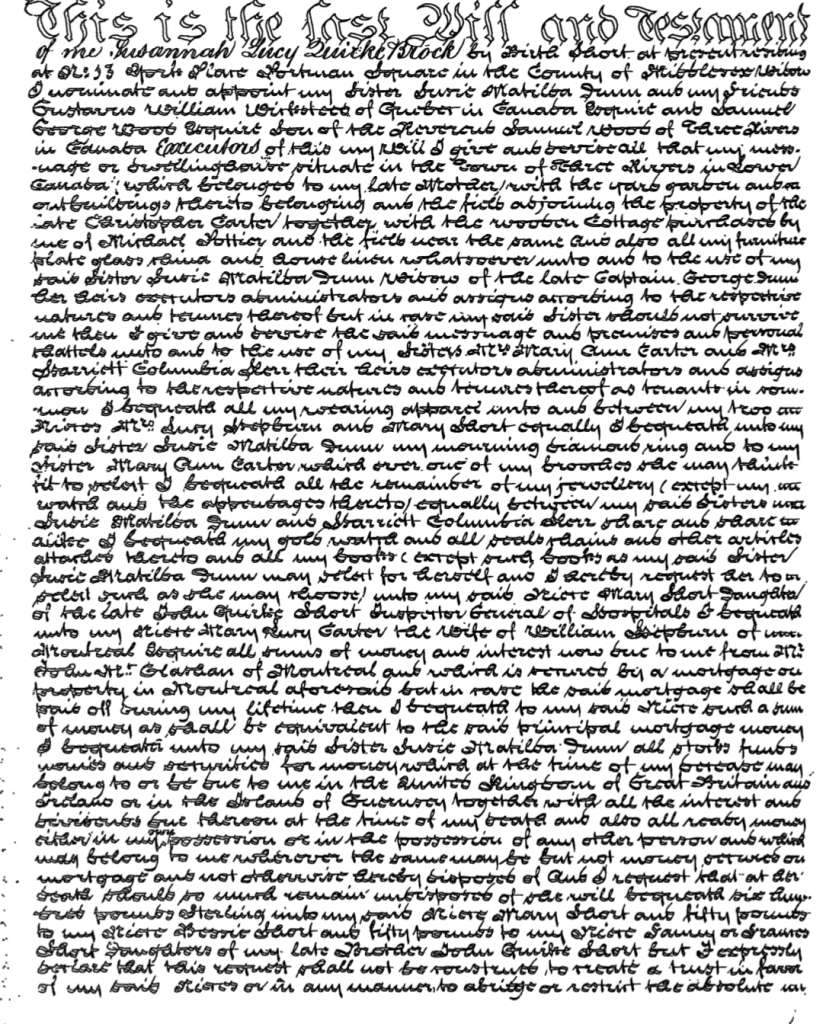 This is the last Will and Testament
of me Susannah Lucy Quirke Brock by Birth Short at present residing
at No. 13 York Place Portman Square in the County of Middlesex Widow
I nominate and appoint my Sister Susie Matilda Dunn and my Friends
Gustavus William Wicksteed of Quebec in Canada Esquire and Samuel
George Wood Esquire Son of the Reverend Samuel Wood of Three Rivers
in Canada Executors of this my Will I give and devise all that my mess-
-uage or dwellinghouse situate in the Town of Three Rivers in Lower
Canada (which belonged to my late Mother) with the yard garden and
outbuildings thereto belonging and the field adjoining the property of the
late Christopher Carter together with the wooden Cottage purchased by
me of Michael Pottier and the field near the same And also all my furniture
plate glass china and house linen whatsoever unto and to the use of my
said Sister Susie Matilda Dunn Widow of the late Captain George Dunn
her heirs executors administrators and assigns according to the respective
natures and tenures thereof but in case my said Sister should not survive
me then I give and devise the said messuage and premises and personal
chattels unto and to the use of my Sisters Mrs Mary Ann Carter and Mrs
Harriett Columbia Kerr their heirs executors administrators and assigns
according to the respective natures and tenures thereof as tenants in com-
-mon I bequeath all my wearing apparel unto and between my two
Nieces Mrs Lucy Stepburn and Mary Short equally I bequeath unto my
said Sister Susie Matilda Dunn my mourning diamond ring and to my
Sister Mary Ann Carter which ever one of my brooches she may think
fit to select I bequeath all the remainder of my jewellery (except my
watch and the appendages thereto) equally between my said Sisters
Susie Matilda Dunn and Harriett Columbia Kerr share and share
alike I bequeath my gold watch and all seals chains and other articles
attached thereto and all my books (except such books as my said Sister
Susie Matilda Dunn may select for herself and I hereby request her to
select such as she may choose) unto my said Niece Mary Short Daughter
of the late John Quirke Short Inspector General of Hospitals I bequeath
unto my Niece Mary Lucy Carter the Wife of William Stepburn of
Montreal Esquire all sums of money and interest now due to me from Mr
John Mc Glashan of Montreal and which is secured by a mortgage on
property in Montreal aforesaid but in case the said mortgage shall be
paid off during my lifetime then I bequeath to my said Niece such a sum
of money as shall be equivalent to the said principal mortgage money
I bequeath unto my said Sister Susie Matilda Dunn all stocks funds
monies and securities for money which at the time of my decease may
belong to or be due to me in the United Kingdom of Great Britain and
Ireland or in the Island of Guernsey together with all the interest and
dividends due thereon at the time of my death and also all ready money
either in my own possession or in the possession of any other person and which
may belong to me wherever the same may be but not money secured on
mortgage and not otherwise hereby disposed of And I request that at her
death should so much remain undisposed of she will bequeath six hun-
-dred pounds Sterling unto my said Niece Mary Short and fifty pounds
to my Niece Bessie Short and fifty pounds to my Niece Fanny or Frances
Short Daughters of my late Brother John Quirke Short but I expressly
declare that this request shall not be construed to create a trust in favor
of my said Nieces or in any manner to abridge or restrict the absolute